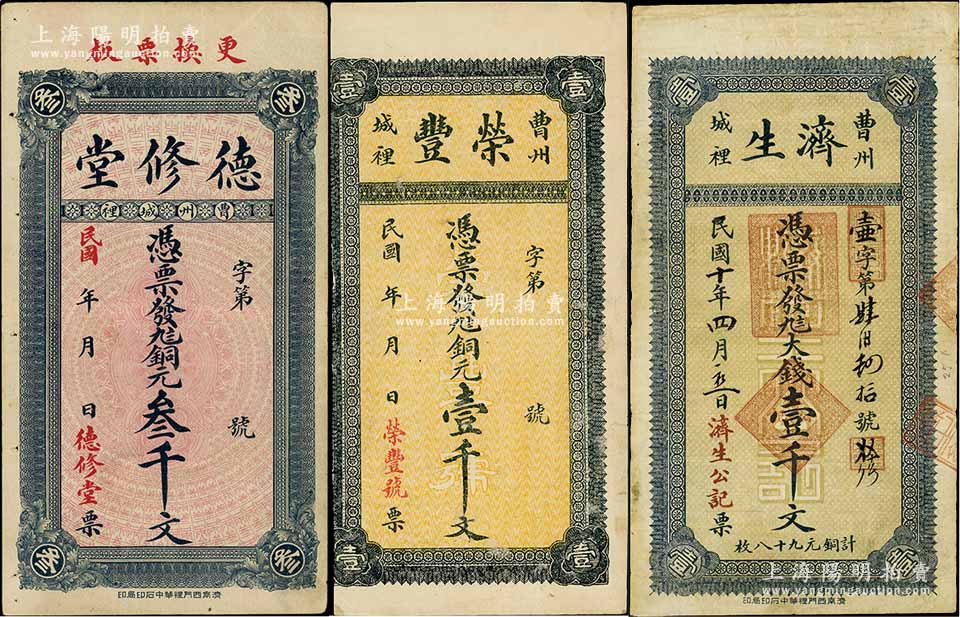 上海陽明拍賣
www.yangmingauction.com
更換票板
叁
叁
德修堂
曹州城裡
字第 號
憑票發九八銅元叁千文
民國 年 月 日德修堂票
叁
叁
濟南西門裡華中石印局印
壹
壹
曹州
榮豐
城裡
字第 號
憑票發九八銅元壹千文
民國 年 月 日榮豐號票
上海陽明拍賣
www.yangmingauction.com
壹
壹
壹
壹
曹州
濟生
城裡
壹字第 號
憑票發九八大錢壹千文
民國十年四月 日濟生公記票
計銅元九十八枚
壹
壹
濟南西門裡華中石印局印
上海陽明拍賣
www.yangmingauction.com